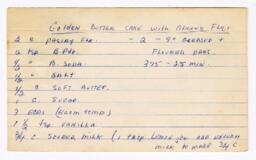 Golden Butter Cake with Almond Fluff
2 c Pastry Flr. - 2 - 9" greased +
2 tsp B. Pdr. Floured pans.
1/2 " B. Soda. 375 - 25 min.
1/2 " Salt
1/2 c Soft Butter.
1 c. Sugar
3 eggs (room temp)
1 1/2 tsp vanilla
3/4 c Soured milk (1 tbsp. and enough
milk to make 3/4 c.